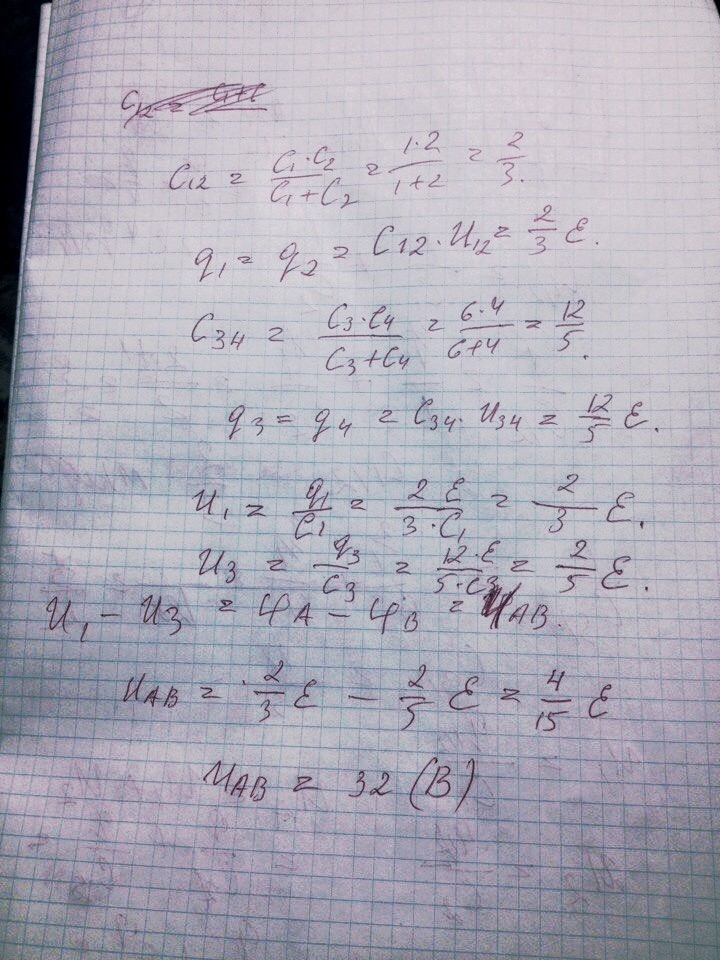 C₁₂ = C₁·C₂/(C₁+C₂) = 1·2/(1+2) = 2/3.
q₁ = q₂ = C₁₂·U₁₂ = 2/3 ℰ.
C₃₄ = C₃·C₄/(C₃+C₄) = 6·4/(6+4) = 12/5.
q₃ = q₄ = C₃₄·U₃₄ = 12/5 ℰ.
U₁ = q₁/C₁ = 2ℰ/(3·C₁) = 2/3 ℰ.
U₃ = q₃/C₃ = 12·ℰ/(5·C₃) = 2/5 ℰ.
U₁ − U₃ = φA − φB = UAB.
UAB = 2/3 ℰ − 2/5 ℰ = 4/15 ℰ
UAB = 32 (В)